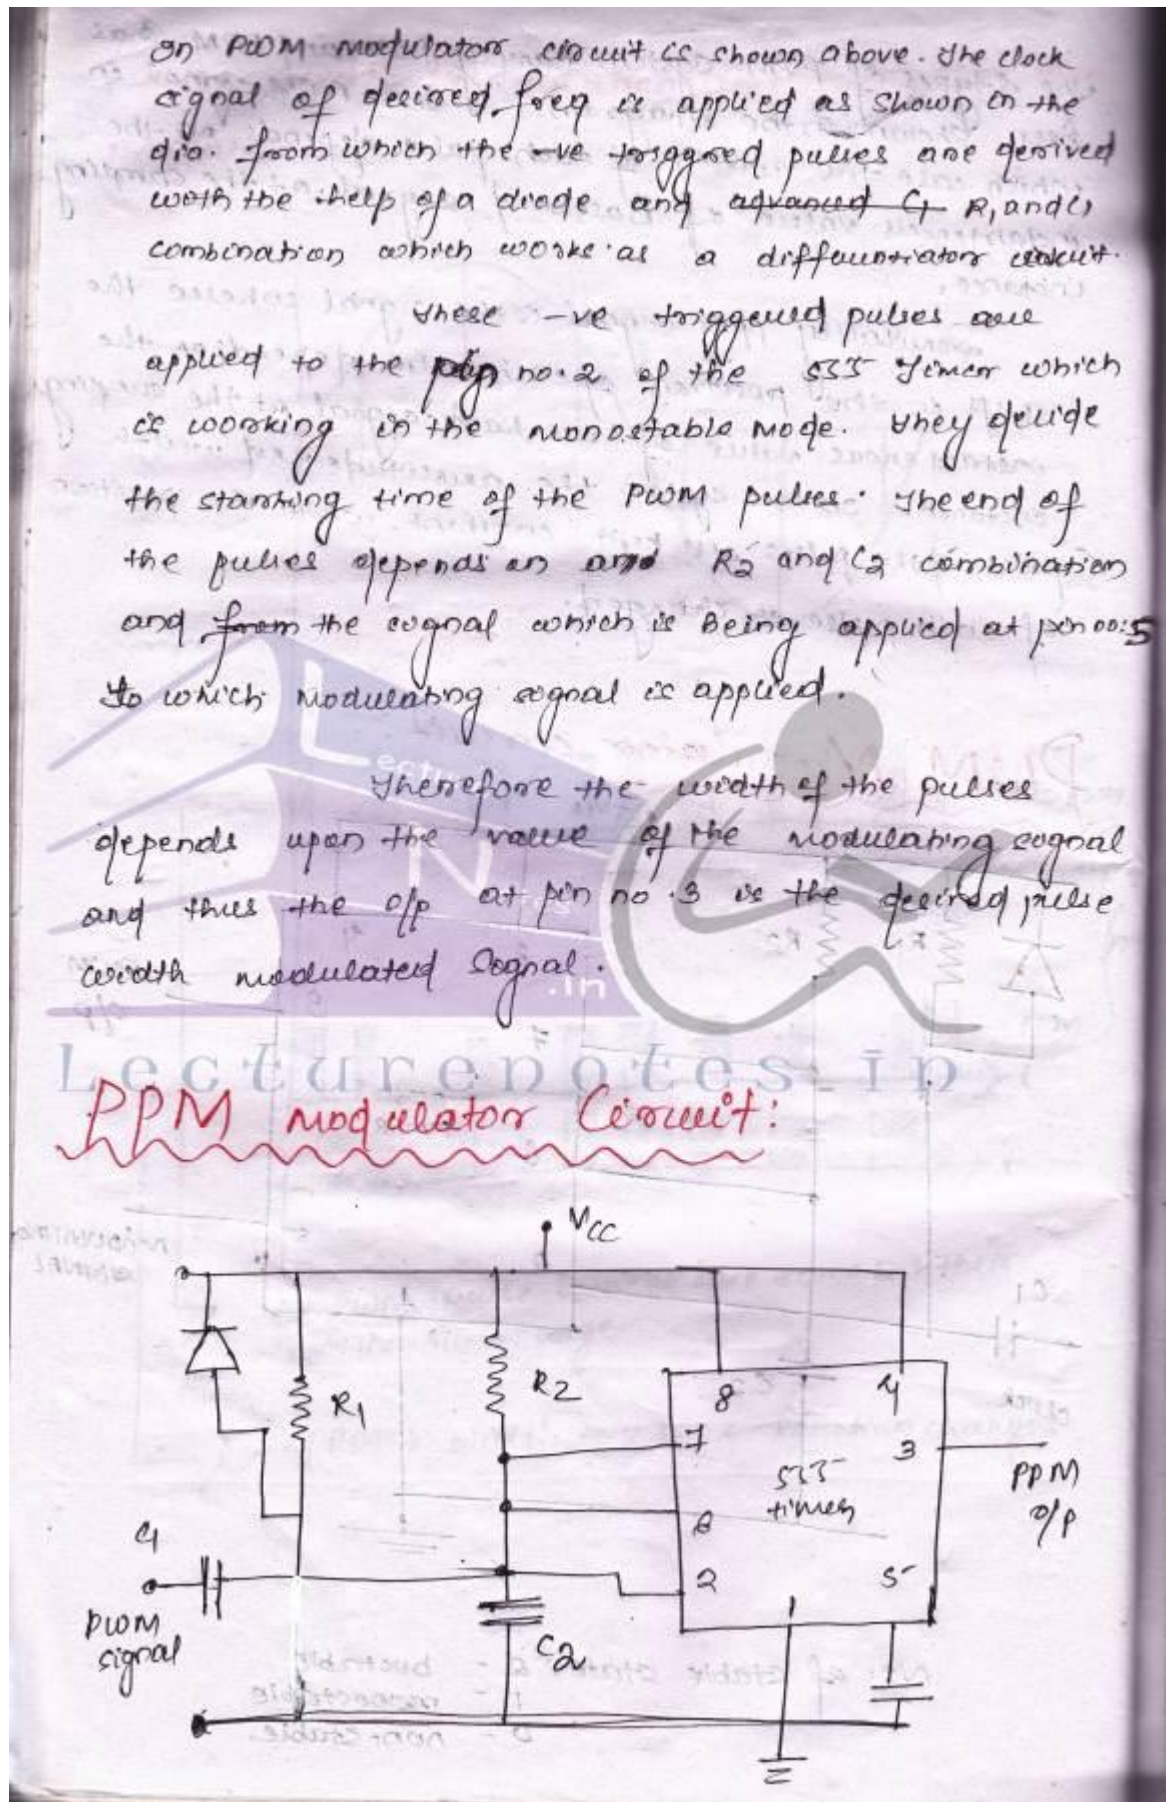 In PWM modulator circuit is shown above. The clock
signal of desired freq is applied as shown in the
dia. from which the -ve triggred pulses are derived
with the help of a diode and advanced C1 R1 and C1
combination which works as a differentiator circuit.
These -ve triggered pulses are
applied to the pin no. 2 of the 555 Timer which
is working in the monostable mode. They decide
the starting time of the PWM pulses. The end of
the pulses depends on and R2 and C2 combination
and from the signal which is Being applied at pin no: 5
To which modulating signal is applied.
Therefore the width of the pulses
depends upon the value of the modulating signal
and thus the o/p at pin no. 3 is the desired pulse
width modulated signal.
Lecture
Notes
.in
Lecturenotes.in
PPM modulator Circuit:
VCC
R1
R2
8
4
7
3
555
timer
PPM
o/p
6
C1
2
5
PWM
signal
1
C2